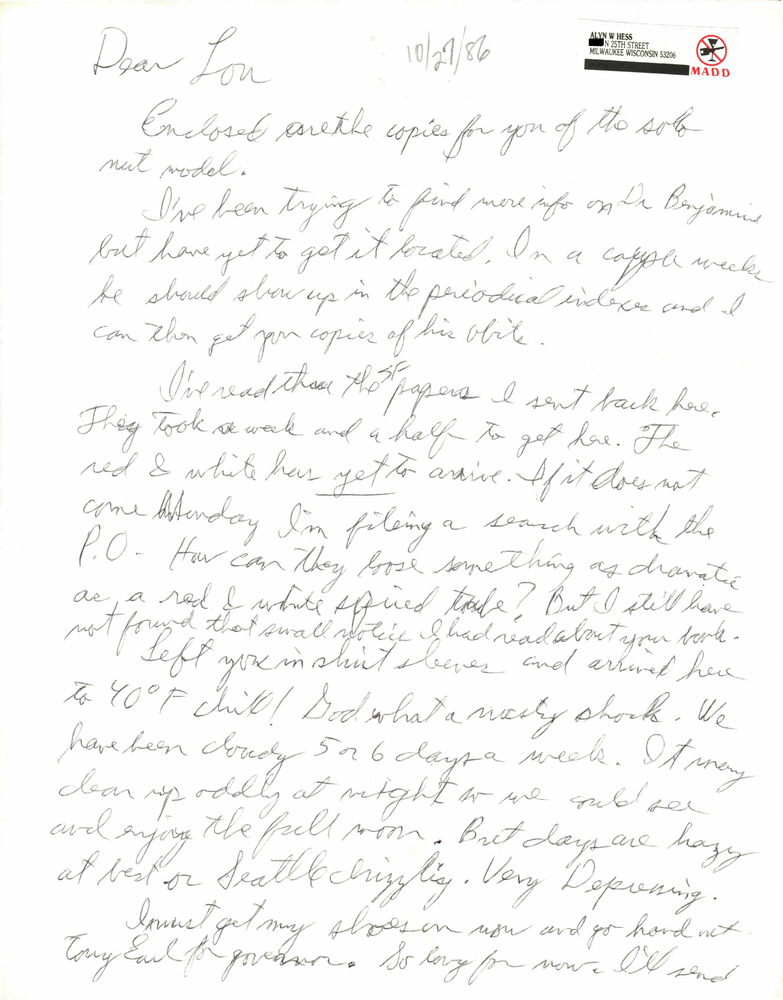 ALYN W HESS
N 25TH STREET
MILWAUKEE WISCONSIN 53206
MADD
10/27/86
Dear Lou
Enclosed are the copies for you of the solo
nut model.
I've been trying to find more info on Dr Benjamine
but have yet to get it located. In a couple weeks
he should show up in the periodical indexes and I
can then get you copies of his obits.
I've read thru the SF papers I sent back here.
They took a week and a half to get here. The
red & white has yet to arrive. If it does not
come Monday I'm fileing a search with the
P.O. - How can they loose something as dramatic
as a red & white tube? But I still have
not found that small notice I had read about your book.
Left you in shirt sleeves and arrived here
to 40° F chill! God what a nasty shock. We
have been cloudy 5 or 6 days a week. It may
clear up oddly at night so we could see
and enjoy the full moon. But days are hazy
at best or Seattle drizzlig. Very Depressing.
I must get my shoes on now and go hand out
Tony Earl for governor. So long for now. I'll send